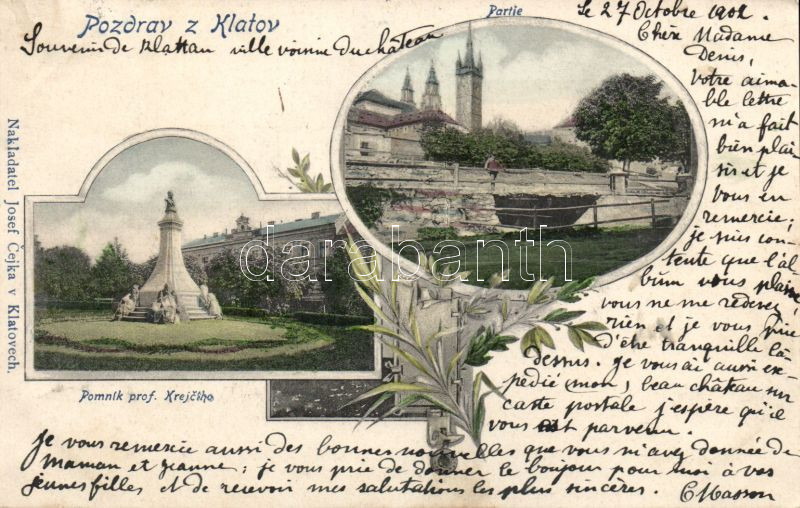 Pozdrav z Klatov
Partie
Le 27 Octobre 1902.
Souvenir de Klattau ville voisine du château
Cher Madame
Denis,
Votre aima-
ble lettre
m'a fait
bien plai
sir et je
vous en
remercie;
je suis con-
tente que l'al
bum vous plaise,
vous ne me redevez
rien et je vous prie
d'être tranquille là-
dessus. Je vous ai aussi ex-
pédié (mon) beau château sur
carte postale j'espère qu'il
vous est parvenu.
Je vous remercie aussi des bonnes nouvelles que vous m'avez données de
Maman et Jeanne; je vous prie de donner le bonjour pour moi à vos
jeunes filles et de recevoir mes salutations les plus sincères.
C Masson
Nakladatel Josef Čejka v Klatovech.
Pomník prof. Krejčího
darabanth